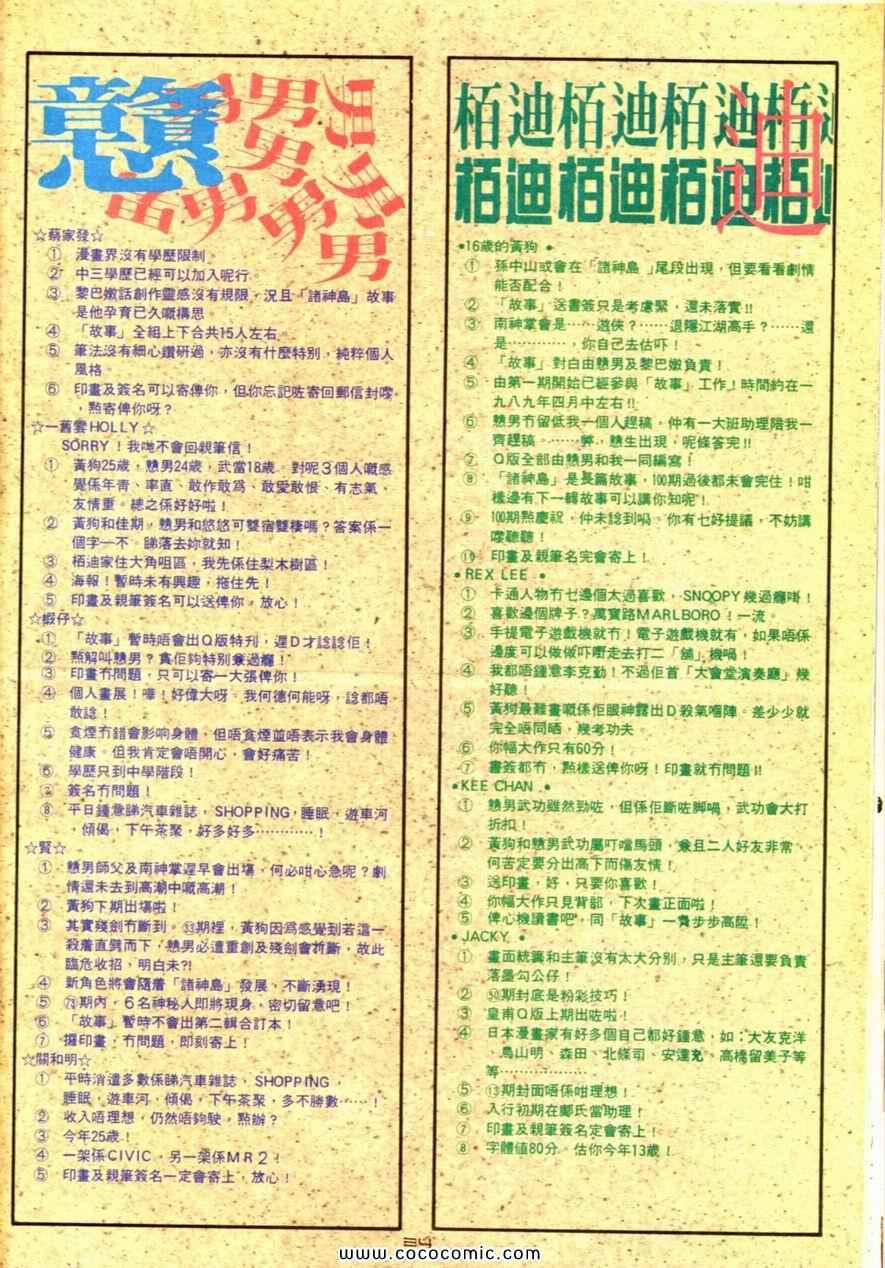 戇男男男男男男男男男男
☆蔡家發☆
① 漫畫界沒有學歷限制。
② 中三學歷已經可以加入呢行。
③ 黎巴嫩話創作靈感沒有規限,況且「諸神島」故事
是他孕育已久嘅構思。
④ 「故事」全組上下合共15人左右。
⑤ 筆法沒有細心鑽研過,亦沒有什麼特別,純粹個人
風格
⑥ 印畫及簽名可以寄俾你,但你忘記咗寄回郵信封嚟
,點寄俾你呀?
☆一舊雲HOLLY☆
SORRY!我哋不會回親筆信!
① 黃狗25歲,戇男24歲,武當18歲。對呢3個人嘅感
覺係年青、率直、敢作敢為、敢愛敢恨、有志氣、
友情重。總之係好好啦!
② 黃狗和佳期,戇男和悠悠可雙宿雙棲嗎?答案係一
個字—不。睇落去妳就知!
③ 栢迪家住大角咀區,我先係住梨木樹區!
④ 海報!暫時未有興趣,拖住先!
⑤ 印畫及親筆簽名可以送俾你,放心!
☆蝦仔☆
① 「故事」暫時唔會出Q版特刊,遲D才諗諗佢!
② 點解叫戇男?貪佢夠特別兼過癮!
③ 印畫冇問題,只可以寄一大張俾你!
④ 個人畫展!嘩!好偉大呀。我何德何能呀,諗都唔
敢諗!
⑤ 食煙冇錯會影响身體,但唔食煙並唔表示我會身體
健康。但我肯定會唔開心,會好痛苦!
⑥ 學歷只到中學階段!
⑦ 簽名冇問題!
⑧ 平日鍾意睇汽車雜誌,SHOPPING,睡眠,遊車河
,傾偈,下午茶聚,好多好多…………!
☆賢☆
① 戇男師父及南神掌遲早會出場,何必咁心急呢?劇
情還未去到高潮中嘅高潮!
② 黃狗下期出場啦!
③ 其實殘劍冇斷到。㉝期裡,黃狗因為感覺到若這一
殺着直劈而下,戇男必遭重創及殘劍會折斷,故此
臨危收招,明白未?!
④ 新角色將會隨着「諸神島」發展,不斷湧現!
⑤ 期內,6名神秘人即將現身,密切留意吧!
⑥ 「故事」暫時不會出第二輯合訂本!
⑦ 攞印畫,冇問題,即刻寄上!
☆關和明☆
① 平時消遣多數係睇汽車雜誌,SHOPPING,
睡眠,遊車河,傾偈,下午茶聚,多不勝數……!
② 收入唔理想,仍然唔夠駛,點辦?
③ 今年25歲!
④ 一架係CIVIC,另一架係MR2!
⑤ 印畫及親筆簽名一定會寄上,放心!
栢迪栢迪栢迪栢迪
栢迪栢迪栢迪栢迪
迪
•16歲的黃狗•
① 孫中山或會在「諸神島」尾段出現,但要看看劇情
能否配合!
② 「故事」送書簽只是考慮緊,還未落實!!
③ 南神掌會是……遊俠?……退隱江湖高手?……還
是…………,你自己去估吓!
④ 「故事」對白由戇男及黎巴嫩負責!
⑤ 由第一期開始已經參與「故事」工作!時間約在一
九八九年四月中左右!!
⑥ 戇男冇留低我一個人趕稿,仲有一大班助理陪我一
齊趕稿。……嘩,戇生出現,呢條答完!!
⑦ Q版全部由戇男和我一同編寫!
⑧ 「諸神島」是長篇故事,100期過後都未會完住!咁
樣邊有下一輯故事可以講你知呢!
⑨ 100期點慶祝,仲未諗到喎。你有乜好提議,不妨講
嚟聽聽!
⑩ 印畫及親筆名完會寄上!
•REX LEE•
① 卡通人物冇乜邊個太過喜歡,SNOOPY幾過癮啩!
② 喜歡邊個牌子?萬寶路MARLBORO!一流。
③ 手提電子遊戲機就冇!電子遊戲機就有,如果唔係
邊度可以做做吓嘢走去打二「舖」機喎!
④ 我都唔鍾意李克勤!不過佢首「大會堂演奏廳」幾
好聽!
⑤ 黃狗最難畫嘅係佢眼神露出D殺氣嗰陣。差少少就
完全唔同晒,幾考功夫。
⑥ 你幅大作只有60分!
⑦ 書簽都冇,點樣送俾你呀!印畫就冇問題!!
•KEE CHAN•
① 戇男武功雖然勁咗,但係佢斷咗脚喎,武功會大打
折扣!
② 黃狗和戇男武功屬叮噹馬頭,兼且二人好友非常,
何苦定要分出高下而傷友情!
③ 送印畫,好,只要你喜歡!
④ 你幅大作只見背部,下次畫正面啦!
⑤ 俾心機讀書吧,同「故事」一齊步步高陞!
•JACKY•
① 畫面統籌和主筆沒有太大分別,只是主筆還要負責
落墨勾公仔!
② ㊿期封底是粉彩技巧!
③ 皇甫Q版上期出咗啦!
④ 日本漫畫家有好多個自己都好鍾意,如:大友克洋
、鳥山明、森田、北條司、安達充、高橋留美子等
等………………
⑤ ⑬期封面唔係咁理想!
⑥ 入行初期在鄺氏當助理!
⑦ 印畫及親筆簽名定會寄上!
⑧ 字體值80分。估你今年13歲!
34
www.cococomic.com